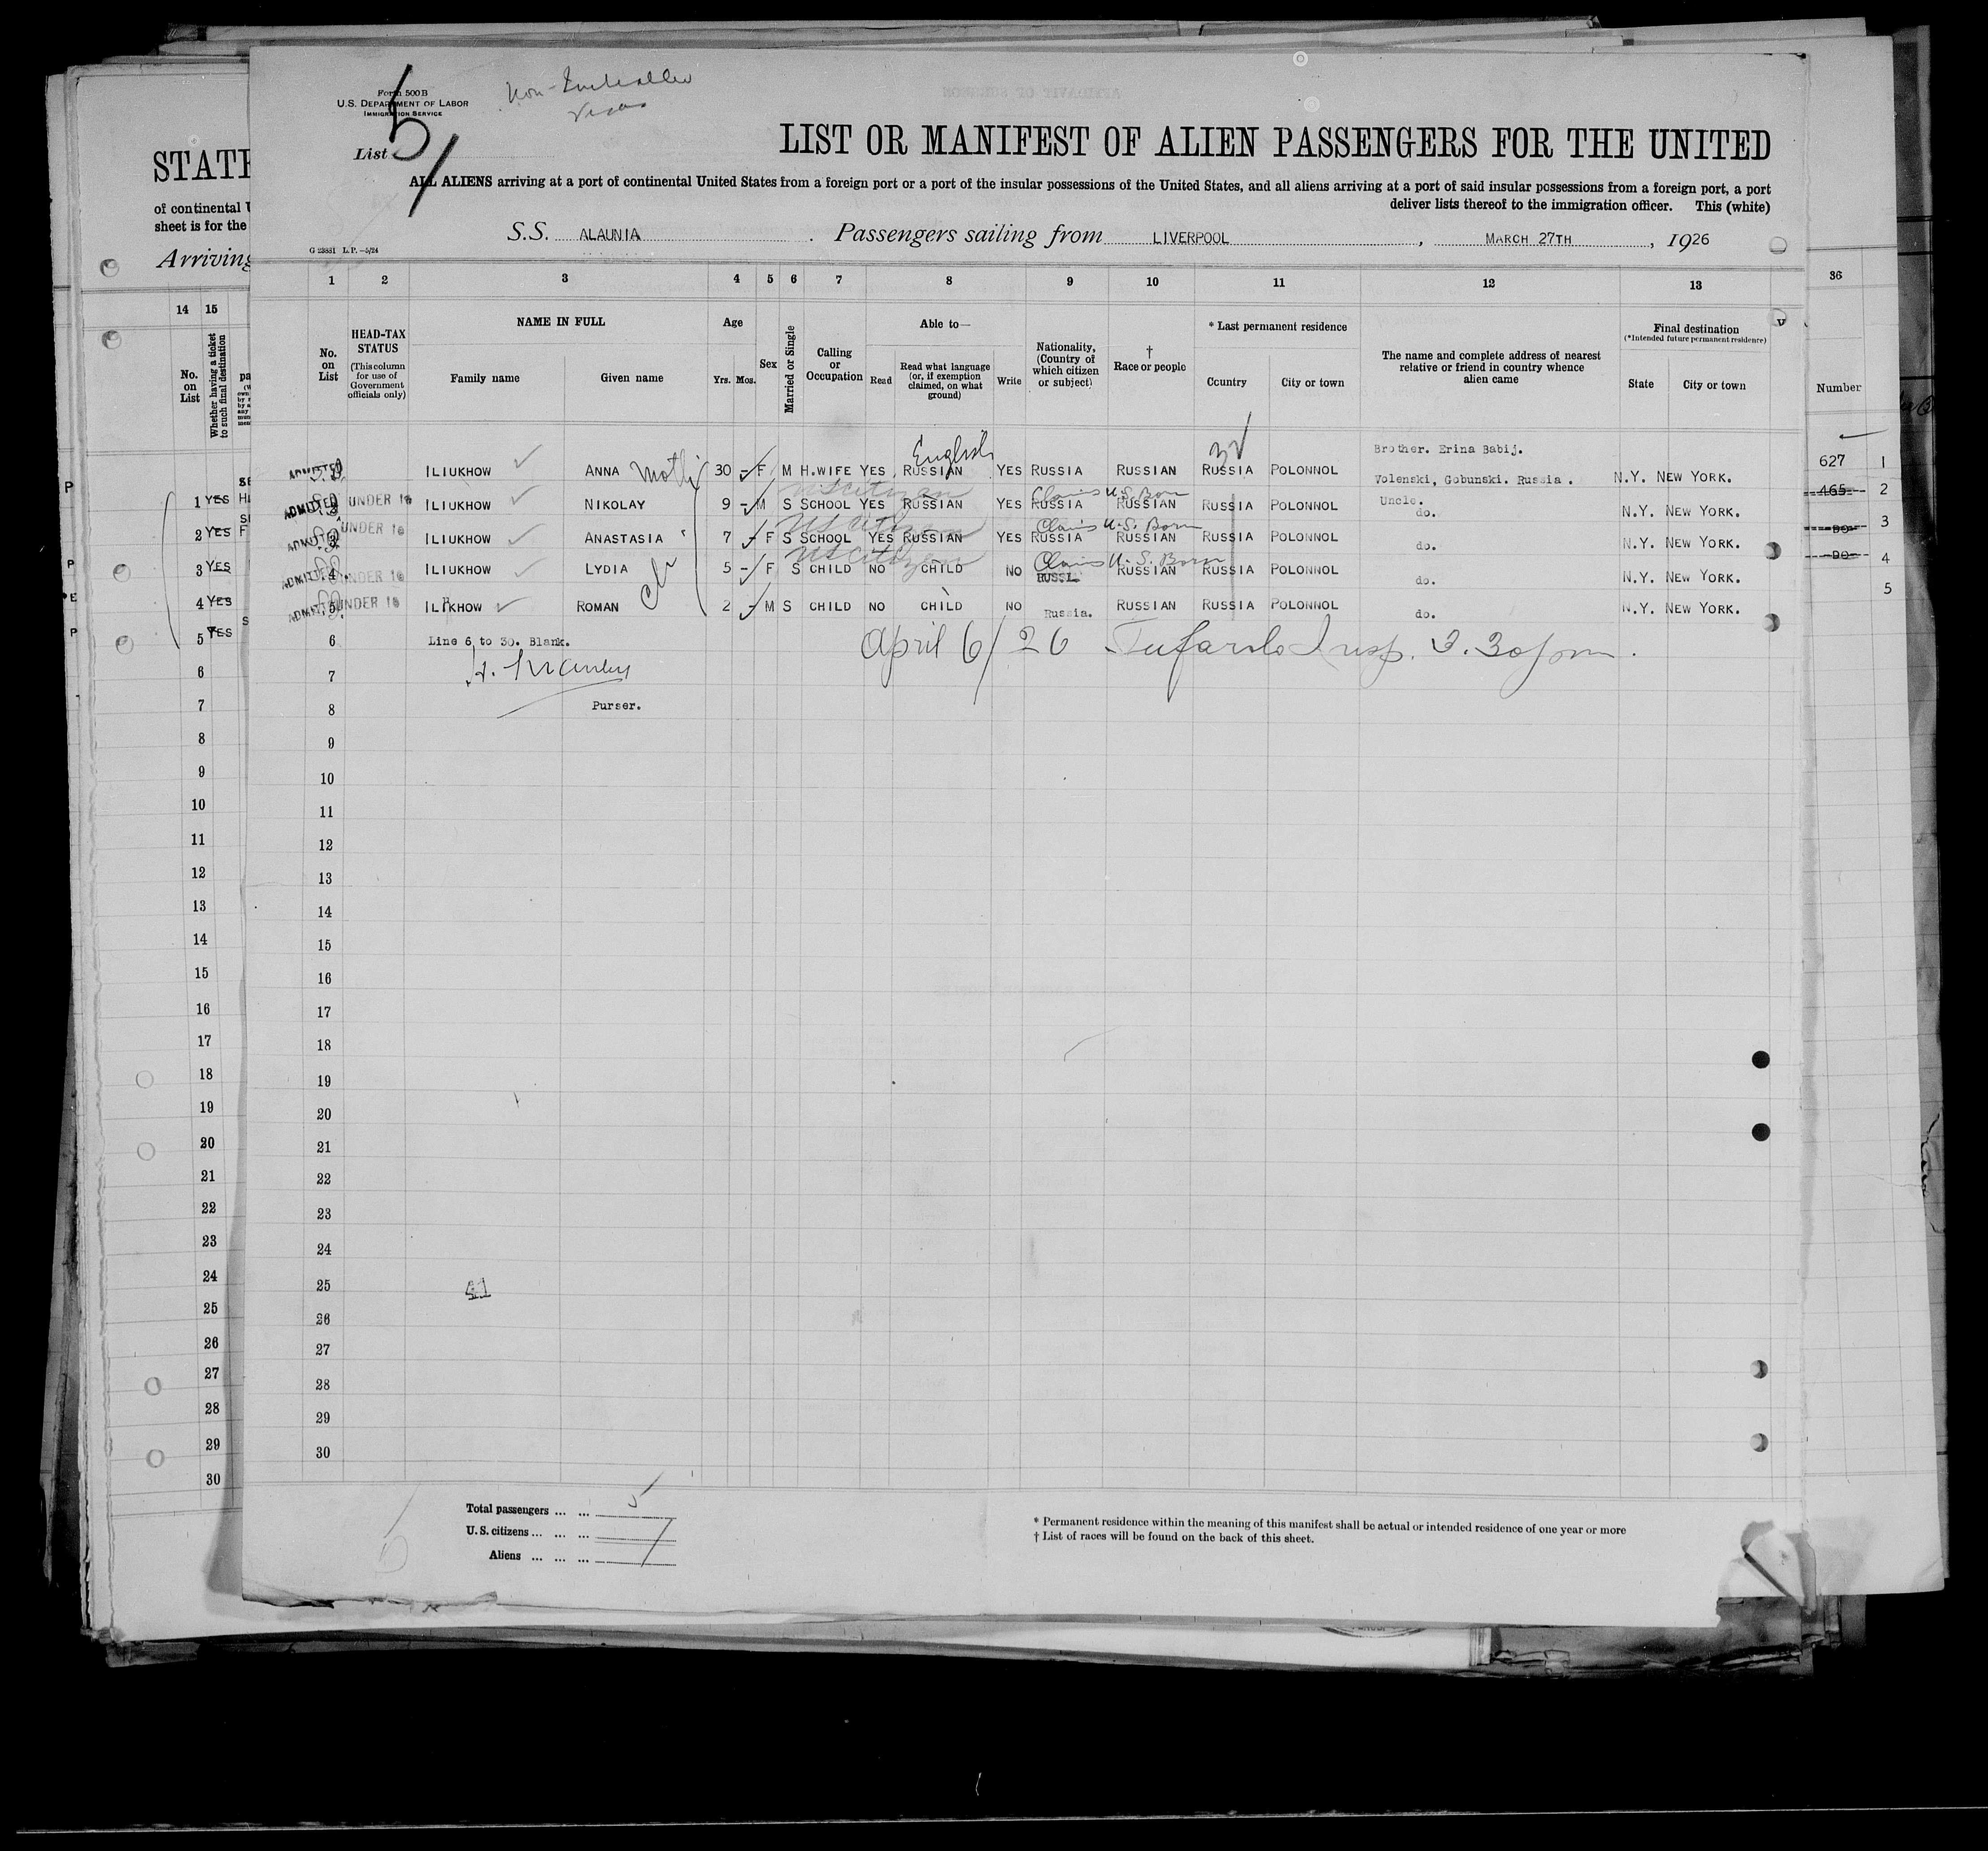 Form 500B
U.S. DEPARTMENT OF LABOR
IMMIGRATION SERVICE
List 5
LIST OR MANIFEST OF ALIEN PASSENGERS FOR THE UNITED
ALL ALIENS arriving at a port of continental United States from a foreign port or a port of the insular possessions of the United States, and all aliens arriving at a port of said insular possessions from a foreign port, a port
deliver lists thereof to the immigration officer. This (white)
S.S. ALAUNIA. Passengers sailing from LIVERPOOL, MARCH 27TH, 1926
G 23831 L.P.—5/24
STATE
of continental U
sheet is for the
Arriving
1 2 3 4 5 6 7 8 9 10 11 12 13
14 15
36
No. on List
HEAD-TAX STATUS
(This column for use of Government officials only)
NAME IN FULL
Family name
Given name
Age
Yrs. Mos.
Sex
Married or Single
Calling or Occupation
Able to—
Read
Read what language (or, if exemption claimed, on what ground)
Write
Nationality, (Country of which citizen or subject)
† Race or people
* Last permanent residence
Country
City or town
The name and complete address of nearest relative or friend in country whence alien came
Final destination
(*Intended future permanent residence)
State
City or town
Number
No. on List
Whether having a ticket to such final destination
English
Brother. Erina Babij.
ADMITTED ILIUKHOW ANNA 30 - F M H.WIFE YES RUSSIAN YES RUSSIA RUSSIAN RUSSIA POLONNOL Volenski, Gobunski. Russia. N.Y. NEW YORK. 627 1
US citizen Claims U.S. Born
ADMITTED 2 UNDER 16 ILIUKHOW NIKOLAY 9 - M S SCHOOL YES RUSSIAN YES RUSSIA RUSSIAN RUSSIA POLONNOL Uncle. do. N.Y. NEW YORK. 465 2
US citizen Claims U.S. Born
ADMITTED 3 UNDER 16 ILIUKHOW ANASTASIA 7 - F S SCHOOL YES RUSSIAN YES RUSSIA RUSSIAN RUSSIA POLONNOL do. N.Y. NEW YORK. DO 3
US citizen Claims U.S. Born
ADMITTED 4 UNDER 16 ILIUKHOW LYDIA 5 - F S CHILD NO CHILD NO RUSSI. RUSSIAN RUSSIA POLONNOL do. N.Y. NEW YORK. DO 4
ADMITTED 5 UNDER 16 ILIKHOW ROMAN 2 - M S CHILD NO CHILD NO Russia. RUSSIAN RUSSIA POLONNOL do. N.Y. NEW YORK. 5
1 YES
2 YES
3 YES
4 YES
5 YES
6 Line 6 to 30. Blank. April 6/26 Insp. 3.30 pm.
7
8 Purser.
9
10
11
12
13
14
15
16
17
18
19
20
21
22
23
24
25
26
27
28
29
30
6
7
8
9
10
11
12
13
14
15
16
17
18
19
20
21
22
23
24
25
26
27
28
29
30
Total passengers ... ... 5
U.S. citizens ... ... ...
Aliens ... ... ...
* Permanent residence within the meaning of this manifest shall be actual or intended residence of one year or more
† List of races will be found on the back of this sheet.